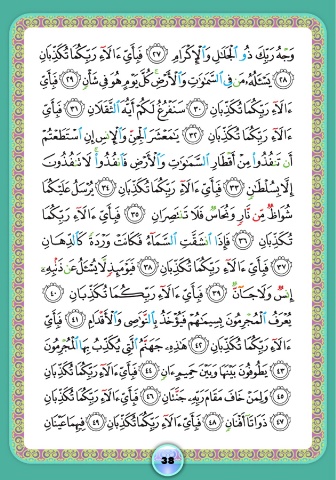 وَجْهُ رَبِّكَ ذُو ٱلْجَلَٰلِ وَٱلْإِكْرَامِ ٢٧ فَبِأَيِّ ءَالَآءِ رَبِّكُمَا تُكَذِّبَانِ
٢٨ يَسْـَٔلُهُۥ مَن فِى ٱلسَّمَٰوَٰتِ وَٱلْأَرْضِ كُلَّ يَوْمٍ هُوَ فِى شَأْنٍ ٢٩ فَبِأَيِّ
ءَالَآءِ رَبِّكُمَا تُكَذِّبَانِ ٣٠ سَنَفْرُغُ لَكُمْ أَيُّهَ ٱلثَّقَلَانِ ٣١ فَبِأَيِّ
ءَالَآءِ رَبِّكُمَا تُكَذِّبَانِ ٣٢ يَٰمَعْشَرَ ٱلْجِنِّ وَٱلْإِنسِ إِنِ ٱسْتَطَعْتُمْ
أَن تَنفُذُوا۟ مِنْ أَقْطَارِ ٱلسَّمَٰوَٰتِ وَٱلْأَرْضِ فَٱنفُذُوا۟ لَا تَنفُذُونَ
إِلَّا بِسُلْطَٰنٍ ٣٣ فَبِأَيِّ ءَالَآءِ رَبِّكُمَا تُكَذِّبَانِ ٣٤ يُرْسَلُ عَلَيْكُمَا
شُوَاظٌ مِّن نَّارٍ وَنُحَاسٌ فَلَا تَنتَصِرَانِ ٣٥ فَبِأَيِّ ءَالَآءِ رَبِّكُمَا
تُكَذِّبَانِ ٣٦ فَإِذَا ٱنشَقَّتِ ٱلسَّمَآءُ فَكَانَتْ وَرْدَةً كَٱلدِّهَانِ
٣٧ فَبِأَيِّ ءَالَآءِ رَبِّكُمَا تُكَذِّبَانِ ٣٨ فَيَوْمَئِذٍ لَّا يُسْـَٔلُ عَن ذَنۢبِهِۦٓ
إِنسٌ وَلَا جَآنٌّ ٣٩ فَبِأَيِّ ءَالَآءِ رَبِّكُمَا تُكَذِّبَانِ ٤٠
يُعْرَفُ ٱلْمُجْرِمُونَ بِسِيمَٰهُمْ فَيُؤْخَذُ بِٱلنَّوَٰصِى وَٱلْأَقْدَامِ ٤١ فَبِأَيِّ
ءَالَآءِ رَبِّكُمَا تُكَذِّبَانِ ٤٢ هَٰذِهِۦ جَهَنَّمُ ٱلَّتِى يُكَذِّبُ بِهَا ٱلْمُجْرِمُونَ
٤٣ يَطُوفُونَ بَيْنَهَا وَبَيْنَ حَمِيمٍ ءَانٍ ٤٤ فَبِأَيِّ ءَالَآءِ رَبِّكُمَا تُكَذِّبَانِ
٤٥ وَلِمَنْ خَافَ مَقَامَ رَبِّهِۦ جَنَّتَانِ ٤٦ فَبِأَيِّ ءَالَآءِ رَبِّكُمَا تُكَذِّبَانِ
٤٧ ذَوَاتَآ أَفْنَانٍ ٤٨ فَبِأَيِّ ءَالَآءِ رَبِّكُمَا تُكَذِّبَانِ ٤٩ فِيهِمَا عَيْنَانِ
38